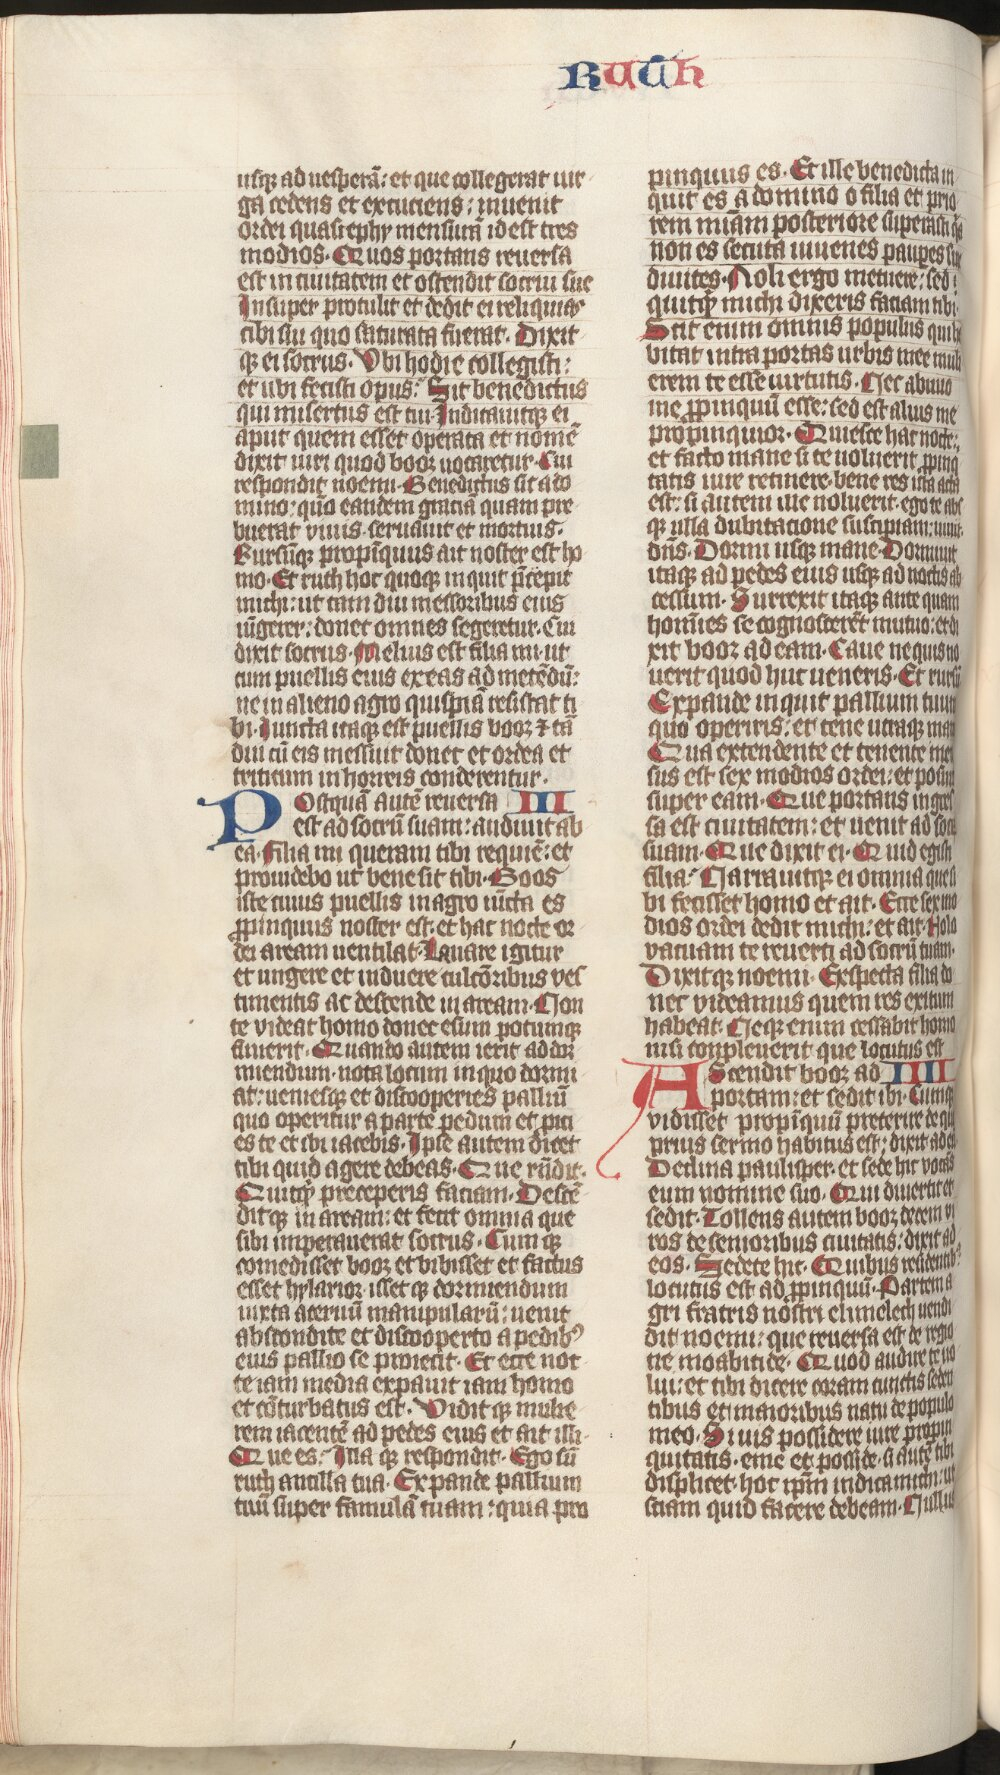 Ruth
usq; ad uesperā: et que collegerat uir
ga cedens et excuciens: inuenit
ordei quasi ephy mensurā id est tres
modios. Quos portans reuersa
est in ciuitatem et ostendit socrui sue
Insuper protulit et dedit ei reliquias
cibi sui quo saturata fuerat. Dixit
q; ei socrus. Vbi hodie collegisti:
et ubi fecisti opus: Sit benedictus
qui misertus est tui. Indicauitq; ei
aput quem esset operata et nomē
dixit uiri quod booz uocaretur. Cui
respondit noemi. Benedictus sit a do
mino: qm̄ eandem graciā quam pre
buerat viuis seruauit et mortuis.
Rursūq; propīquus ait noster est ho
mo. Et ruth hoc quoq; inquit p̄cepit
michi: ut tam diu messoribus eius
iūgerer: donec omnes segetetur. Cui
dixit socrus. Melius est filia mi ut
cum puellis eius exeas ad metēdū:
ne in alieno agro quispiā resistat ti
bi. Iuncta itaq; est puellis booz ⁊ tā
diu cū eis messuit donec et ordea et
triticum in horreis conderentur.
Postquā autē reuersa III
est ad socrū suam: audiuit ab
ea. Filia mi queram tibi requiē: et
prouidebo ut bene sit tibi. Boos
iste cuius puellis in agro iūcta es
ꝓpinquus noster est. et hac nocte or
dei aream uentilat. Lauare igitur
et ungere et induere cultōribus ves
timentis ac descende in aream. Non
te videat homo donec esum potumq;
finierit. Quando autem ierit ad dor
miendum. nota locum in quo dormi
at: ueniesq; et discooperies palliū
quo operitur a parte pedum et proi
es te et ibi iacebis. Ipse autem dicet
tibi quid agere debeas. Que rn̄dit.
Quitq̄ preceperis faciam. Descē
ditq; in aream: et fecit omnia que
sibi imperauerat socrus. Cumq;
comedisset booz et bibisset et factus
esset hylarior. issetq; dormiendum
iuxta aceruū manipularū: uenit
abscondite et discooperto a pedib⁹
eius pallio se proiecit. Et ecce noc
te iam media expauit iam homo
et cōturbatus est. Viditq; mulie
rem iacentē ad pedes eius et ait illi.
Que es: Illa q; respondit. Ego sū
ruth ancilla tua. Expande pallium
tuū super famulā tuam: quia pro
pinquus es. Et ille benedicta in
quit es a domino o filia et prio
rem miām posteriore superasti q̄
non es secuta iuuenes paupes siue
diuites. Noli ergo metuere: sed
quitq̄ michi dixeris faciam tibi.
Scit enim omnis populus qui ha
bitat intra portas urbis mee muli
erem te esse uirtutis. Nec abnuo
me ꝓpinquū esse: sed est alius me
propinquior. Quiesce hac nocte:
et facto mane si te uoluerit ꝓpinq
tatis iure retinere. bene res ista acta
est: si autem ille noluerit. ego te abs
q; ulla dubitacione suscipiam: uiuit
dn̄s. Dormi usq; mane. Dormiuit
itaq; ad pedes eius usq; ad noctis ab
cessum. Surrexit itaq; ante quam
homīes se cognoscerēt mutuo: et di
xit booz ad eam. Caue ne quis no
uerit quod huc ueneris. Et rursū
Expande inquit pallium tuum
quo operiris: et tene utraq; manu
Qua extendente et tenente men
sus est sex modios ordei: et posuit
super eam. Que portans ingres
sa est ciuitatem: et uenit ad socrū
suam. Que dixit ei. Quid egisti
filia: Narrauitq; ei omnia que si
bi fecisset homo et ait. Ecce sex mo
dios ordei dedit michi: et ait. Nolo
vacuam te reuerti ad socrū tuam.
Dixitq; noemi. Exspecta filia do
nec videamus quem res exitum
habeat. Neq; enim cessabit homo
nisi conpleuerit que locutus est
Ascendit booz ad IIII
portam: et sedit ibi. Cumq;
vidisset propīquū preterire de quo
prius sermo habitus est: dixit ad eū
Declina paulisper. et sede hic vocās
eum nomine suo. Qui diuertit et
sedit. Tollens autem booz decem vi
ros de senioribus ciuitatis: dixit ad
eos. Sedete hic. Quibus residentib⁹
locutus est ad ꝓpinquū. Partem a
gri fratris nostri elimelech uendi
dit noemi: que reuersa est de regio
ne moabitide. Quod audire te uo
lui: et tibi dicere coram cunctis seden
tibus et maioribus natu de populo
meo. Si uis possidere iure propin
quitatis. eme et posside. si autē tibi
displicet. hoc ip̄m indica michi: ut
sciam quid facere debeam. Nullus